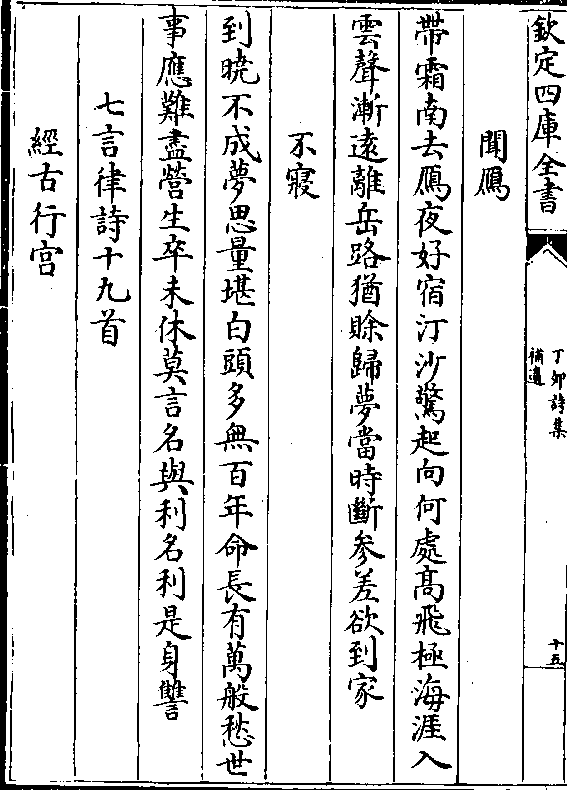 欽定四庫全書
丁卯詩集
補遺
十五
聞鴈
帶霜南去鴈夜好宿汀沙驚起向何處髙飛極海涯入
雲聲漸逺離岳路猶賖歸夢當時斷參差欲到家
不寢
到曉不成夢思量堪白頭多無百年命長有萬般愁世
事應難盡營生卒未休莫言名與利名利是身讐
七言律詩十九首
經古行宫